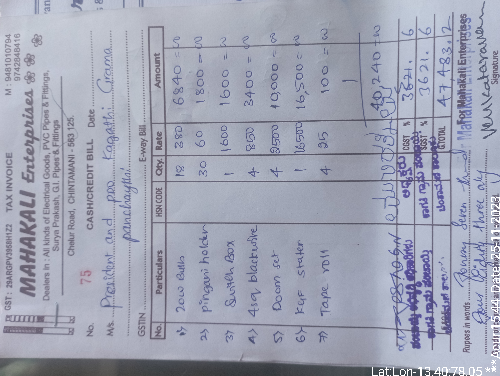 GST : 29ARGPV3958H1Z2 TAX INVOICE M : 9481010794
9742848416
MAHAKALI Enterprises
Dealers In : All kinds of Electrical Goods, PVC Pipes & Fittings,
Surya Prakash, G.I. Pipes & Fittings
Chelur Road, CHINTAMANI - 563 125.
No. 75 CASH/CREDIT BILL Date
M/s. President and pdo Kagathi Grama
panchayathi
GSTIN E-way Bill
No. Particulars HSN CODE Qty. Rate Amount
1) 20W Bulb 18 380 6840 = 00
2) pingani holder 30 60 1800 = 00
3) Switch Box 1 1600 1600 = 00
4) 4sq blackwire 4 850 3400 = 00
5) Doom set 4 2500 10,000 = 00
6) Kgf stater 1 16500 16,500 = 00
7) Tape roll 4 25 100 = 00
40,240 = 00
CGST % 3621.6
SGST % 3621.6
G.TOTAL 47483.2
Rupees in words Forty Seven thousand
four eighty three only
For Mahakali Enterprises
Signature
LatLon-13.40:78.05**